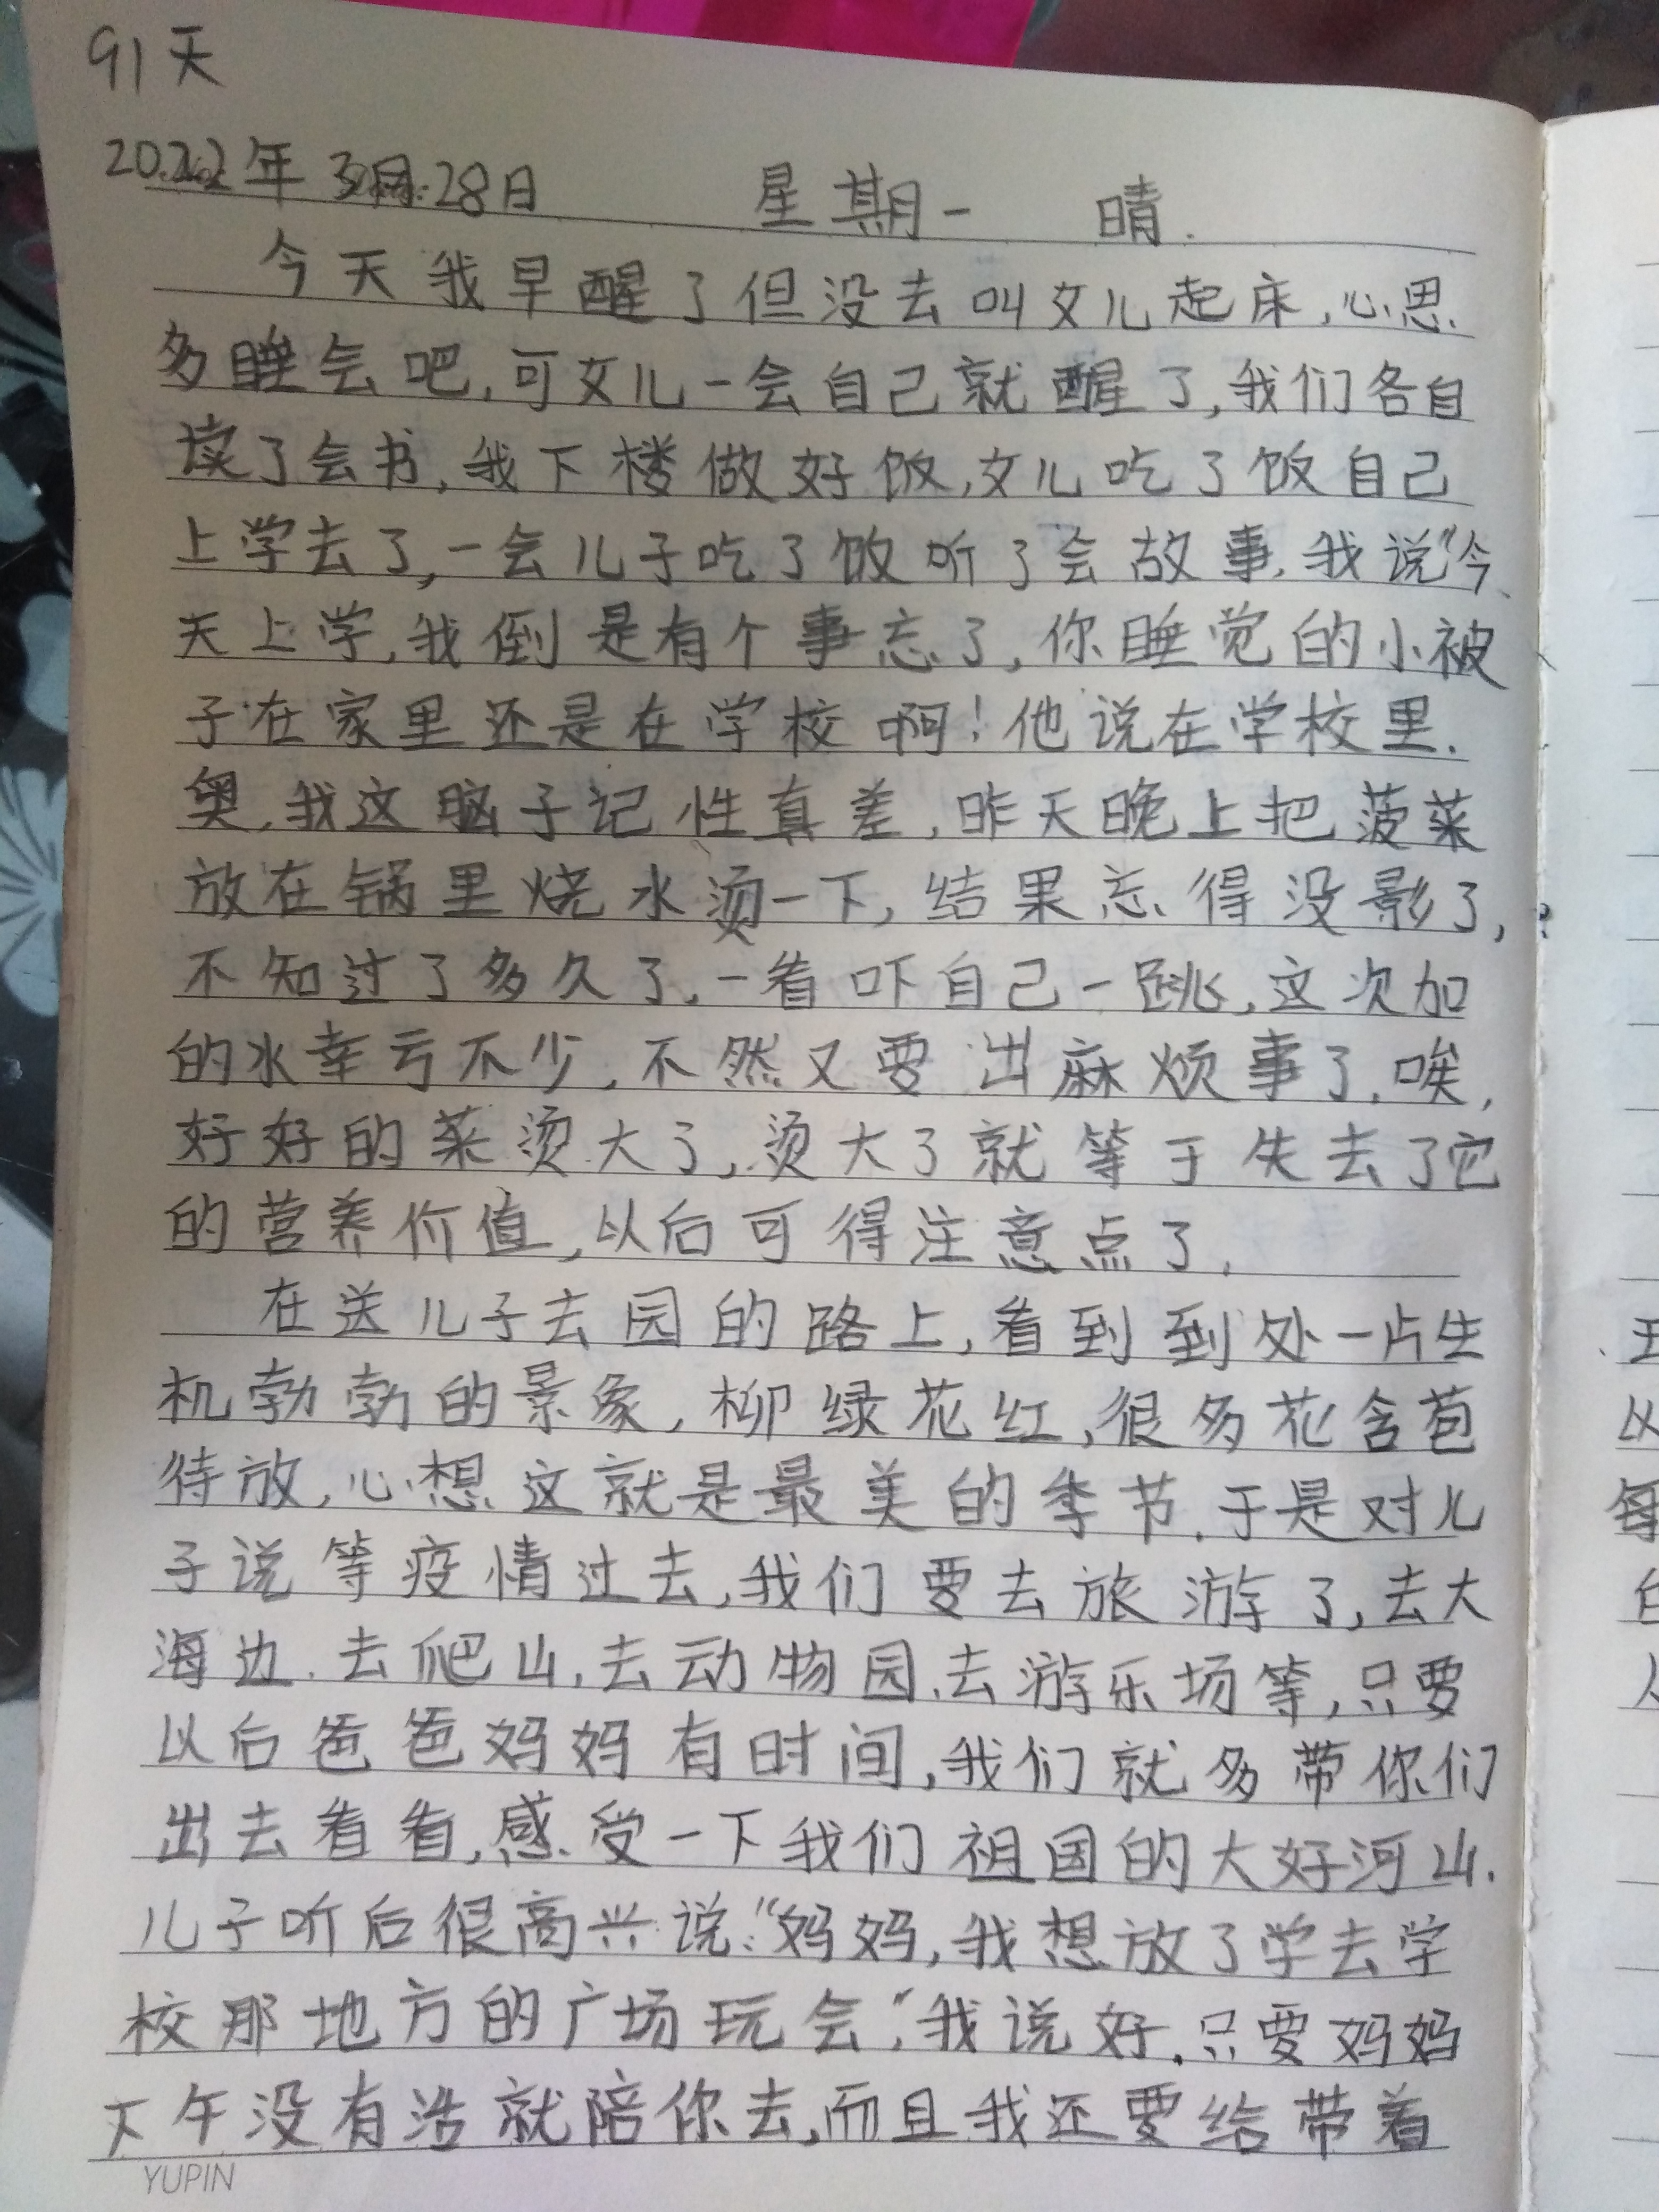 91天
2022年3月28日 星期一 晴.
今天我早醒了但没去叫女儿起床,心思
多睡会吧,可女儿一会自己就醒了,我们各自
读了会书,我下楼做好饭,女儿吃了饭自己
上学去了,一会儿子吃了饭听了会故事,我说"今
天上学,我倒是有个事忘了,你睡觉的小被
子在家里还是在学校啊!他说在学校里.
奥,我这脑子记性真差,昨天晚上把菠菜
放在锅里烧水烫一下,结果忘得没影了,
不知过了多久了,一看吓自己一跳,这次加
的水幸亏不少,不然又要出麻烦事了,唉,
好好的菜烫大了,烫大了就等于失去了它
的营养价值,以后可得注意点了,
在送儿子去园的路上,看到到处一片生
机勃勃的景象,柳绿花红,很多花含苞
待放,心想这就是最美的季节.于是对儿
子说等疫情过去,我们要去旅游了,去大
海边.去爬山,去动物园,去游乐场等,只要
以后爸爸妈妈有时间,我们就多带你们
出去看看,感受一下我们祖国的大好河山.
儿子听后很高兴说:"妈妈,我想放了学去学
校那地方的广场玩会,"我说好,只要妈妈
下午没有活就陪你去,而且我还要给带着
YUPIN